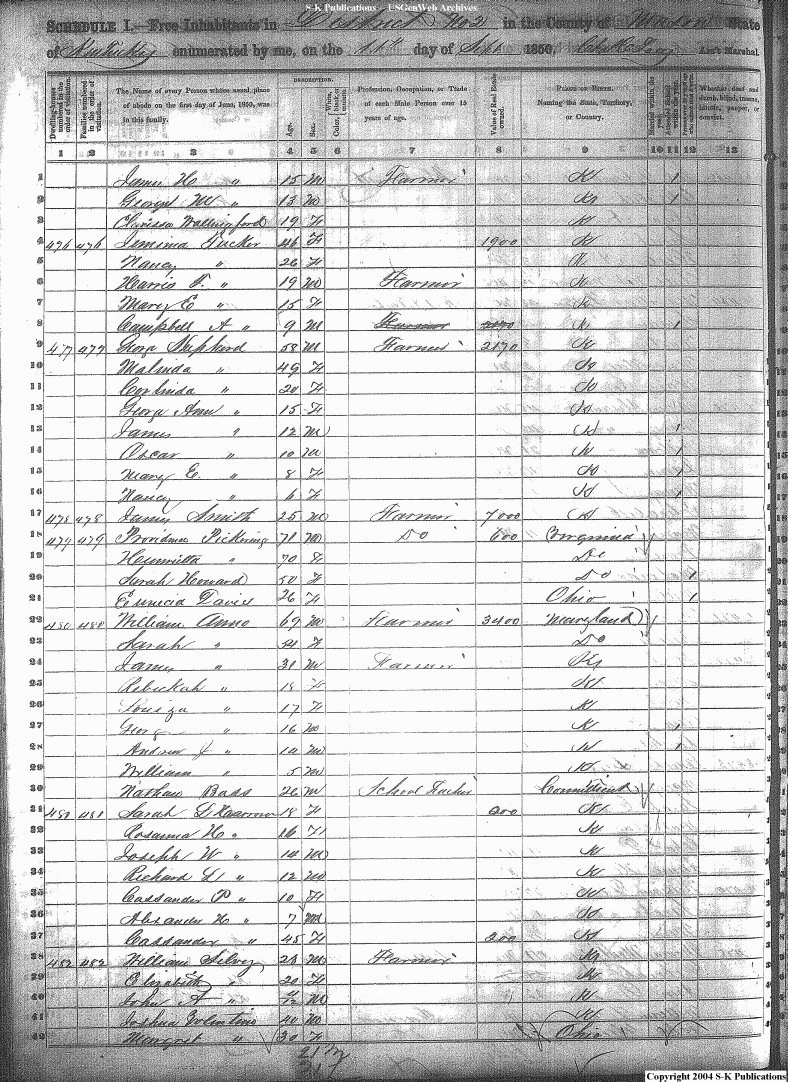 S-K Publications - USGenWeb Archives
SCHEDULE I.—Free Inhabitants in District No 2 in the County of Mason State
of Kentucky enumerated by me, on the day of Sept 1850. Ass't Marshal.
Dwelling-houses numbered in the order of visitation.
Families numbered in the order of visitation.
The Name of every Person whose usual place of abode on the first day of June, 1850, was in this family.
DESCRIPTION.
Age.
Sex.
Color, White, black, or mulatto.
Profession, Occupation, or Trade of each Male Person over 15 years of age.
Value of Real Estate owned.
PLACE OF BIRTH. Naming the State, Territory, or Country.
Married within the year.
Attended School within the year.
Whether deaf and dumb, blind, insane, idiotic, pauper, or convict.
1 2 3 4 5 6 7 8 9 10 11 12 13
1 James H " 15 M Farmer Ky 1
2 George W " 13 M Ky 1
3 Clarissa Wallingford 19 F Ky
4 476 476 Jemima Tucker 46 F 1900 Ky
5 Nancy " 26 F Ky
6 Harris F. " 19 M Farmer Ky
7 Mary E " 15 F Ky
8 Campbell A " 9 M Farmer 2170 Ky 1
9 477 477 Georg Shephard 58 M Farmer 2170 Ky
10 Malinda " 49 F Ky
11 Corlinda " 20 F Ky
12 Georg Ann " 15 F Ky
13 James " 12 M Ky 1
14 Oscar " 10 M Ky 1
15 Mary E. " 8 F Ky 1
16 Nancy " 6 F Ky 1
17 478 478 James Smith 25 M Farmer 7000 Ky
18 479 479 Providence Pickering 71 M Do 600 Virginia
19 Henrietta " 70 F Do
20 Sarah Howard 50 F Do 1
21 Eunicia Davis 26 F Ohio 1
22 480 480 William Anno 69 M Farmer 3400 Maryland
23 Sarah " 54 F Do
24 James " 31 M Farmer Ky
25 Rebeckah " 18 F Ky
26 Louiza " 17 F Ky
27 Georg " 16 M Ky 1
28 Andrew J " 14 M Ky 1
29 William " 5 M Ky
30 Nathan Bass 26 M School Teacher Connecticut
31 481 481 Sarah 18 F 600 Ky
32 Rosanna H " 16 F Ky
33 Joseph W " 14 M Ky
34 Richard " 12 M Ky
35 Cassander P " 10 F Ky
36 Alexander H " 7 M Ky
37 Cassander " 45 F 200 Ky
38 482 482 William Silvey 23 M Farmer Ky
39 Elizabeth " 20 F Ky
40 John A " M Ky
41 Joshua 40 M Ky
42 Margret " 30 F Ohio
Copyright 2004 S-K Publications